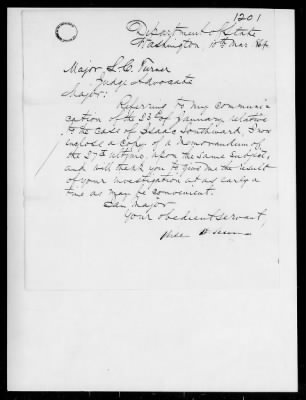 1201
Department of State
Washington 10th Mar 64.
Major L.C. Turner
Judge Advocate
Major:
Referring to my communi-
cation of the 23d of January relative
to the case of Isaac Southward, I now
inclose a copy of a Memorandum of
the 27th ultimo, upon the same subject,
and will thank you to give me the result
of your investigation at as early a
time as may be convenient.
I am Major
Your obedient servant,